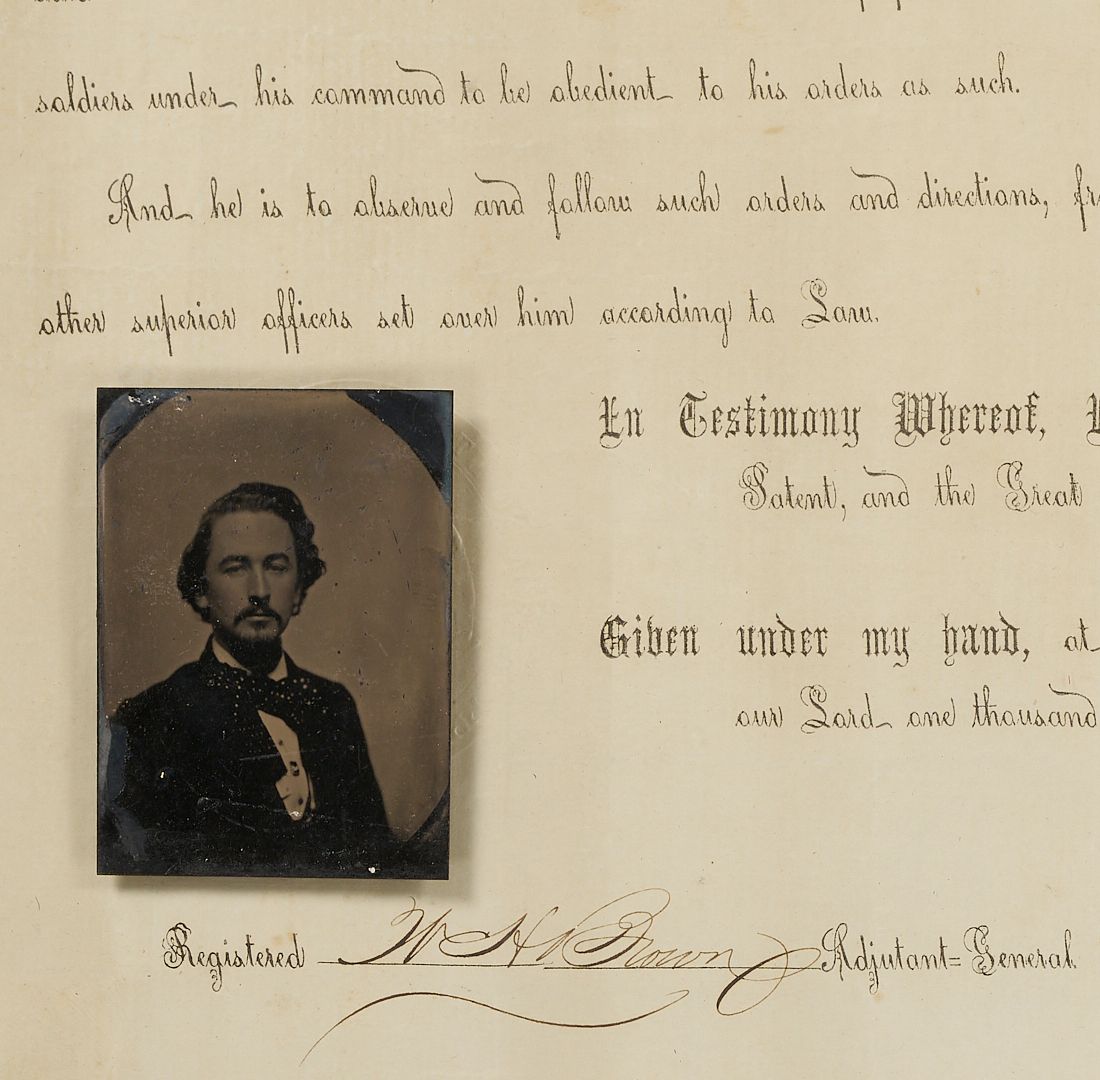 soldiers under his command to be obedient to his orders as such.
And he is to observe and follow such orders and directions,
other superior officers set over him according to Law.
In Testimony Whereof,
Patent, and the Great
Given under my hand, at
our Lord one thousand
Registered W H Brown Adjutant=General.